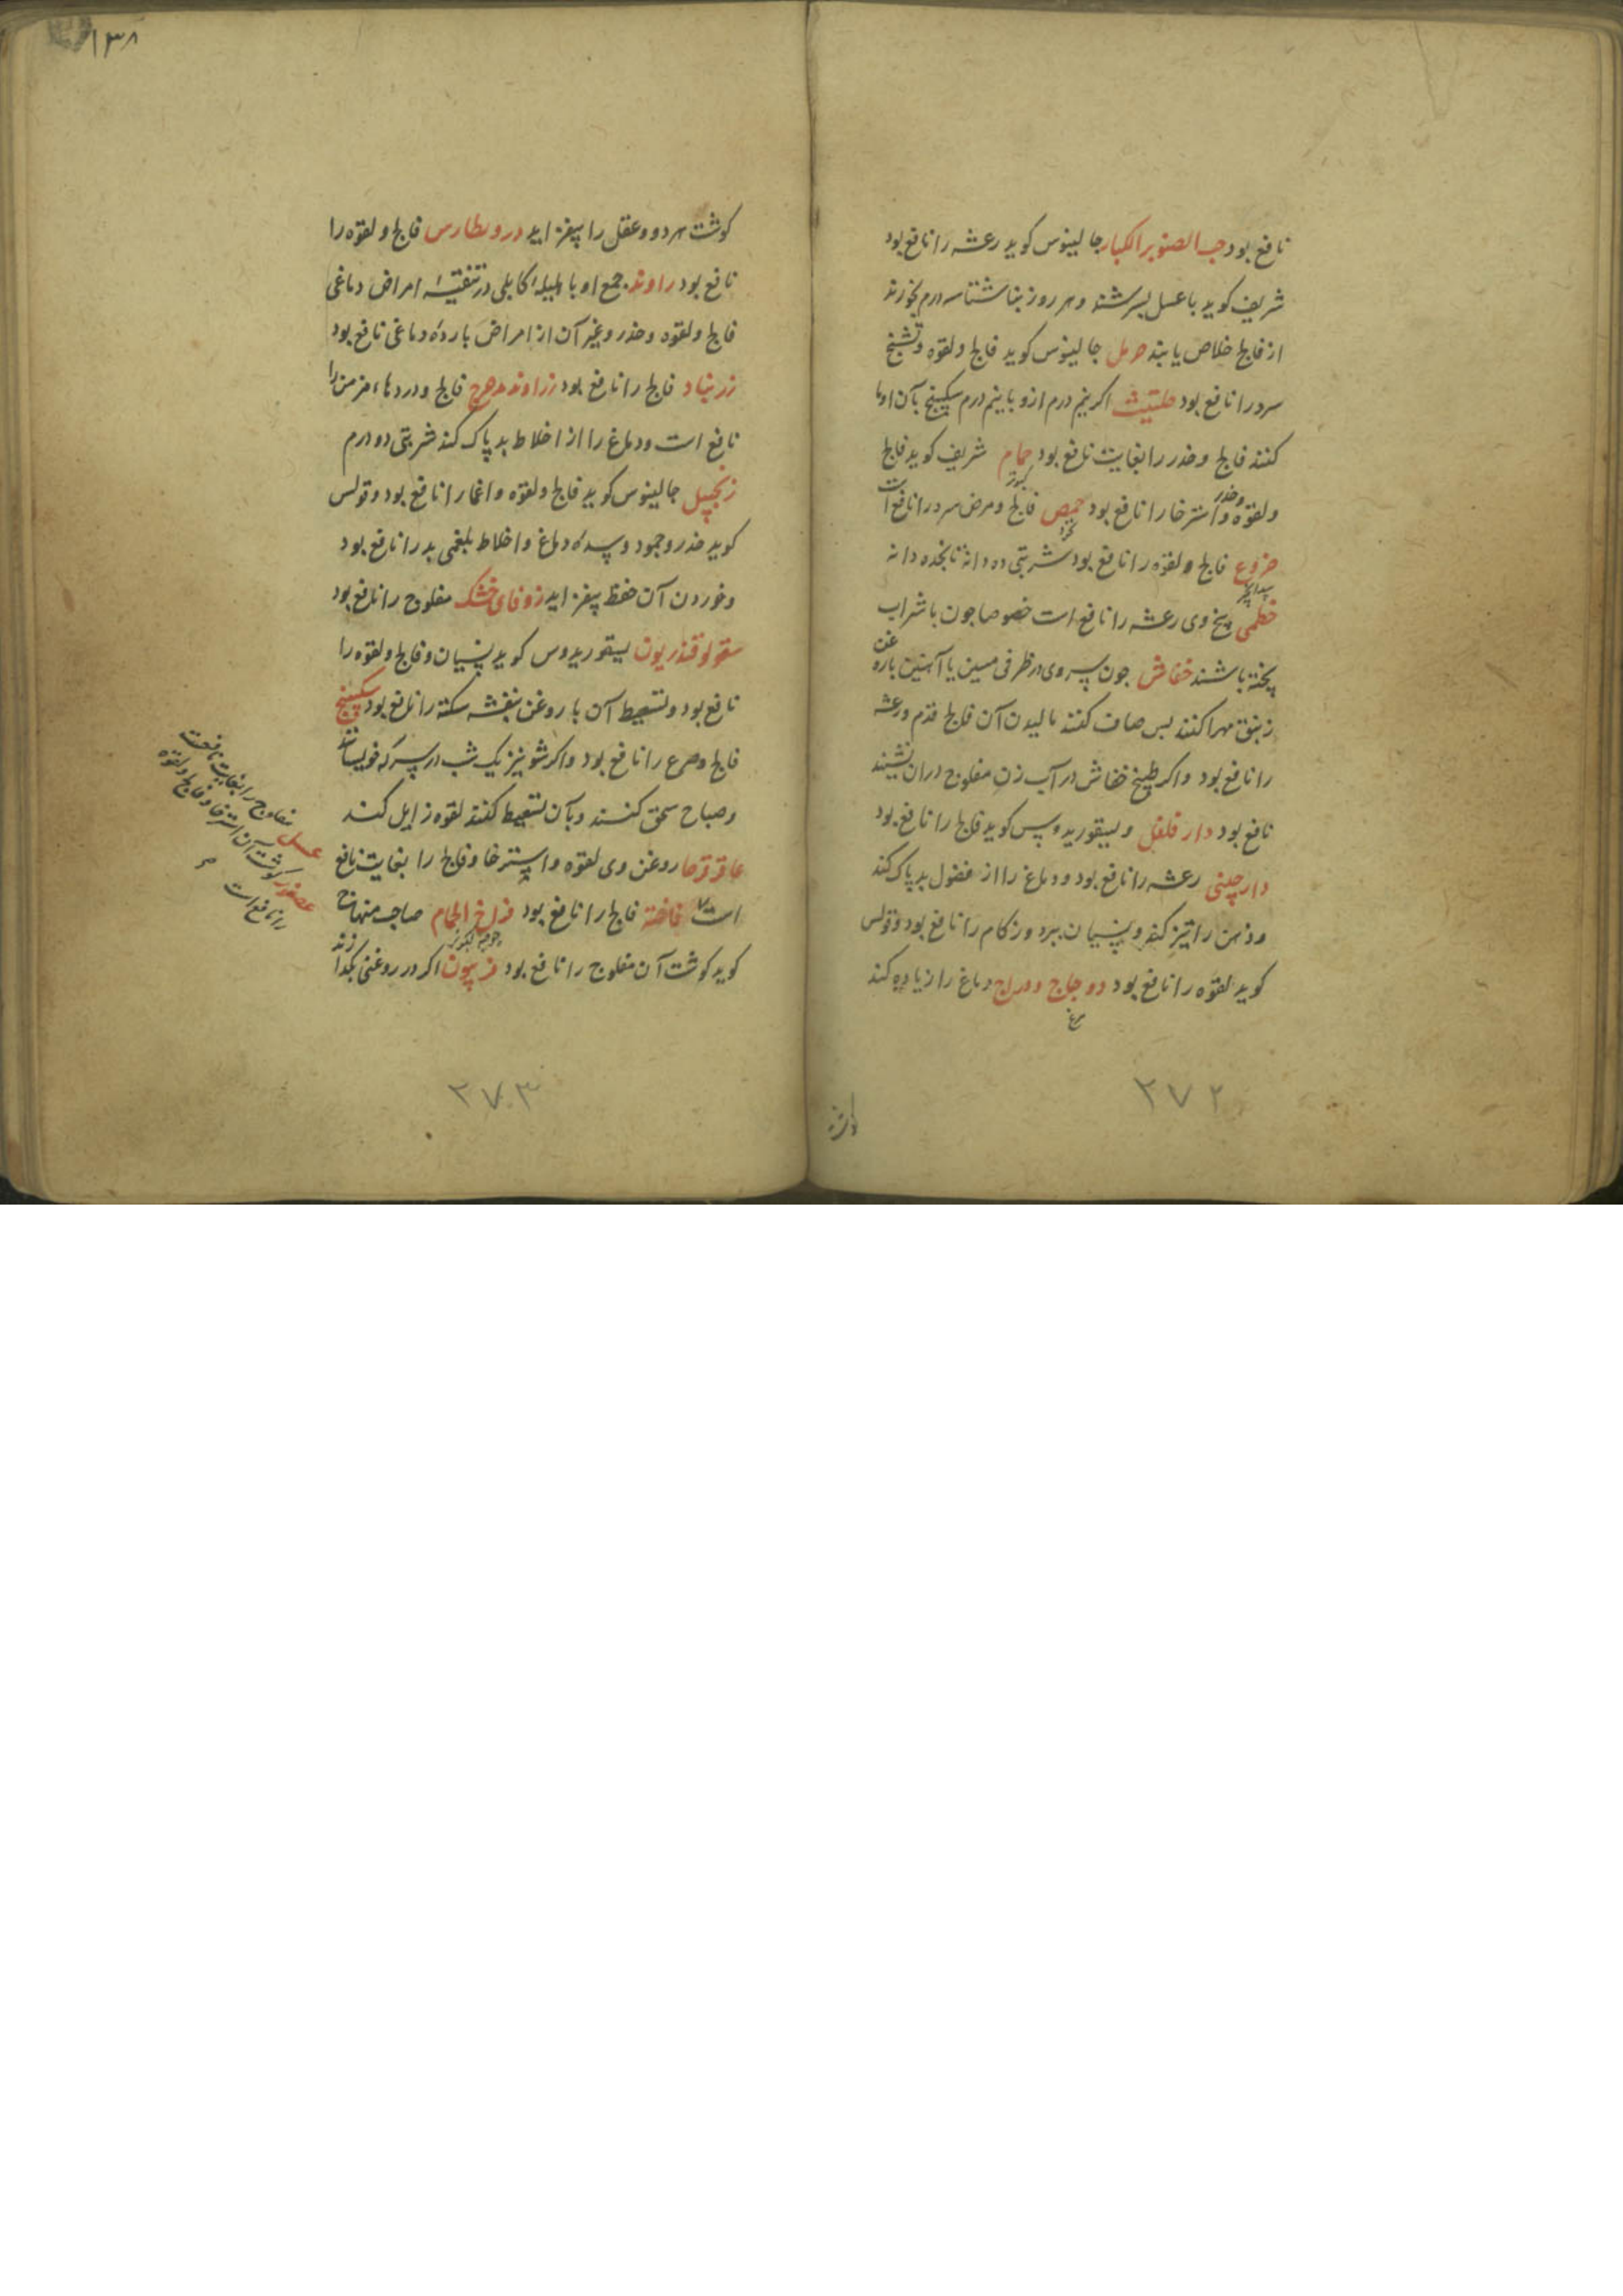 نافع بود حب الصنوبر الکبار جالینوس کوید رعشه را نافع بود
شریف کوید با عسل بسرشته و هر روز بناشتا سه درم بخورند
از فالج خلاص یابند حرمل جالینوس کوید فالج و لقوه و تشنج
سرد را نافع بود حلتیت اکر نیم درم ازو با نیم درم سکبینج بآن
کنند فالج و خدر را بغایت نافع بود حمام شریف کوید فالج
کبوتر
ولقوه و خدر و استرخا را نافع بود حمص فالج و مرض سرد را نافع است
نخود
خروع فالج و لقوه را نافع بود شربتی ده دانه تا پانجده دانه
بیدانجیر
خطمی بیخ وی رعشه را نافع است خصوصا جون با شراب
پخته باشند خفاش جون بسر وی در ظرفی مسین یا آهنین با روغن
زنبق مهرا کنند بس صاف کنند مالیدن آن فالج قدم و رعشه
را نافع بود و اکر طبیخ خفاش در آب زن مفلوج دران نشیند
نافع بود دار فلفل و لیقوریدوس کوید فالج را نافع بود
دارچینی رعشه را نافع بود و دماغ را از فضول بد پاک کند
و ذهن را تیز کند و نسیان ببرد و زکام را نافع بود و قولس
کوید لقوه را نافع بود دو جاج و دراج دماغ را زیاده کند
مرغ
۲۷۲
کوشت
۱۳۸
کوشت هر دو و عقل را بیفزاید دروبطارس فالج و لقوه را
نافع بود راوند جمع او با هلیلۀ کابلی در تنقیۀ امراض دماغی
فالج و لقوه و خدر و غیر آن از امراض بارده دماغی نافع بود
زرنباد فالج را نافع بود زراوند مدحرج فالج و دردهاء مزمن را
نافع است و دماغ را از اخلاط بد پاک کند شربتی دو درم
زنجبیل جالینوس کوید فالج و لقوه و اغما را نافع بود و قولس
کوید خدر و جمود و سده دماغ و اخلاط بلغمی بد را نافع بود
و خوردن آن حفظ بیفزاید زوفای خشک مفلوج را نافع بود
سقولوقندریون لیقوریدوس کوید نسیان و فالج و لقوه را
نافع بود و تسعیط آن با روغن بنفشه سکته را نافع بود سکبینج
فالج و صرع را نافع بود و اکر شونیز یک شب در سرکه خویسانند
و صباح سحق کنند و بآن تسعیط کنند لقوه زایل کند
عاقرقرحا روغن وی لقوه و استرخا و فالج را بغایت نافع
است فاخته فالج را نافع بود فراخ الحام صاحب منهاج
جوجه کبوتر
کوید کوشت آن مفلوج را نافع بود فربیون اکر در روغنی بکدازند
عسل مفلوج را بغایت نافعست
عصفور کوشت آن استرخا و فالج و لقوه
را نافع است
۲۷۳